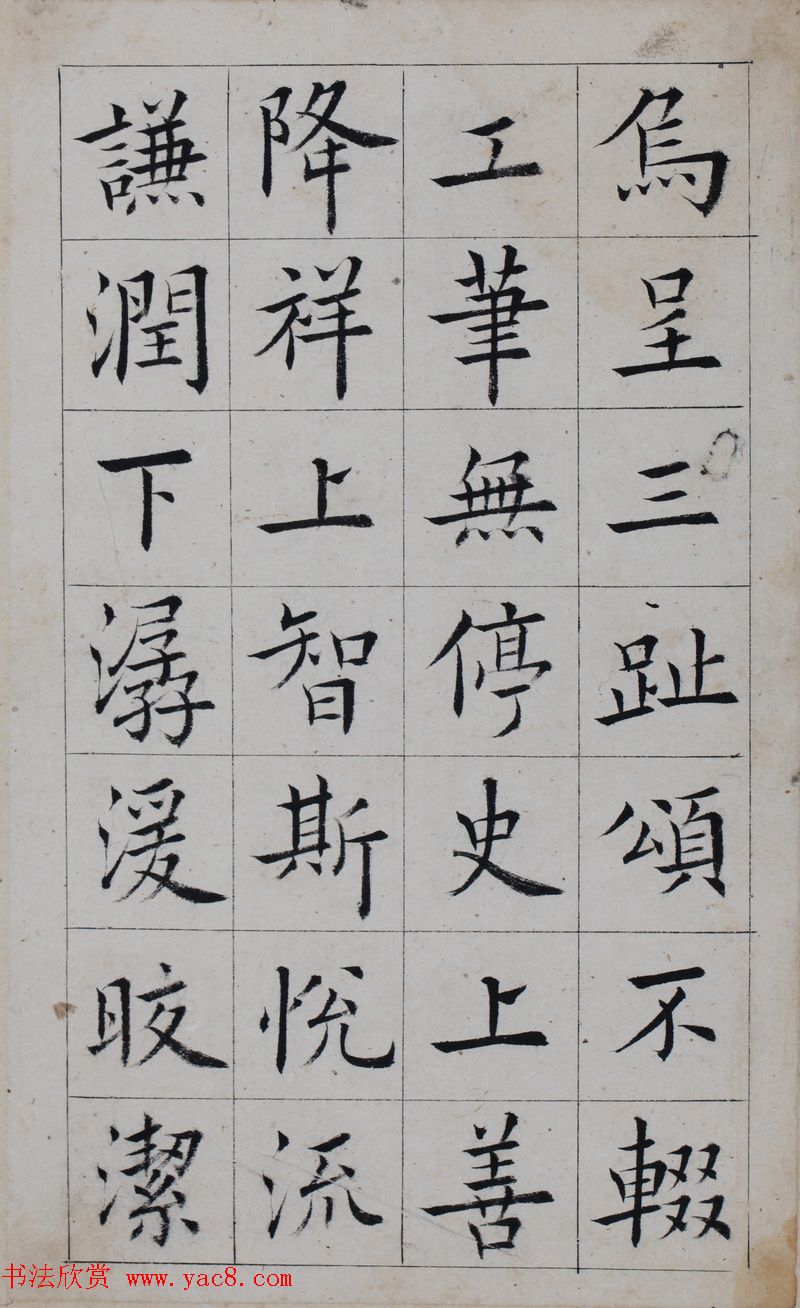 烏呈三趾頌不輟
工筆無停史上善
降祥上智斯悅流
謙潤下潺湲皎潔
书法欣赏 www.yac8.com